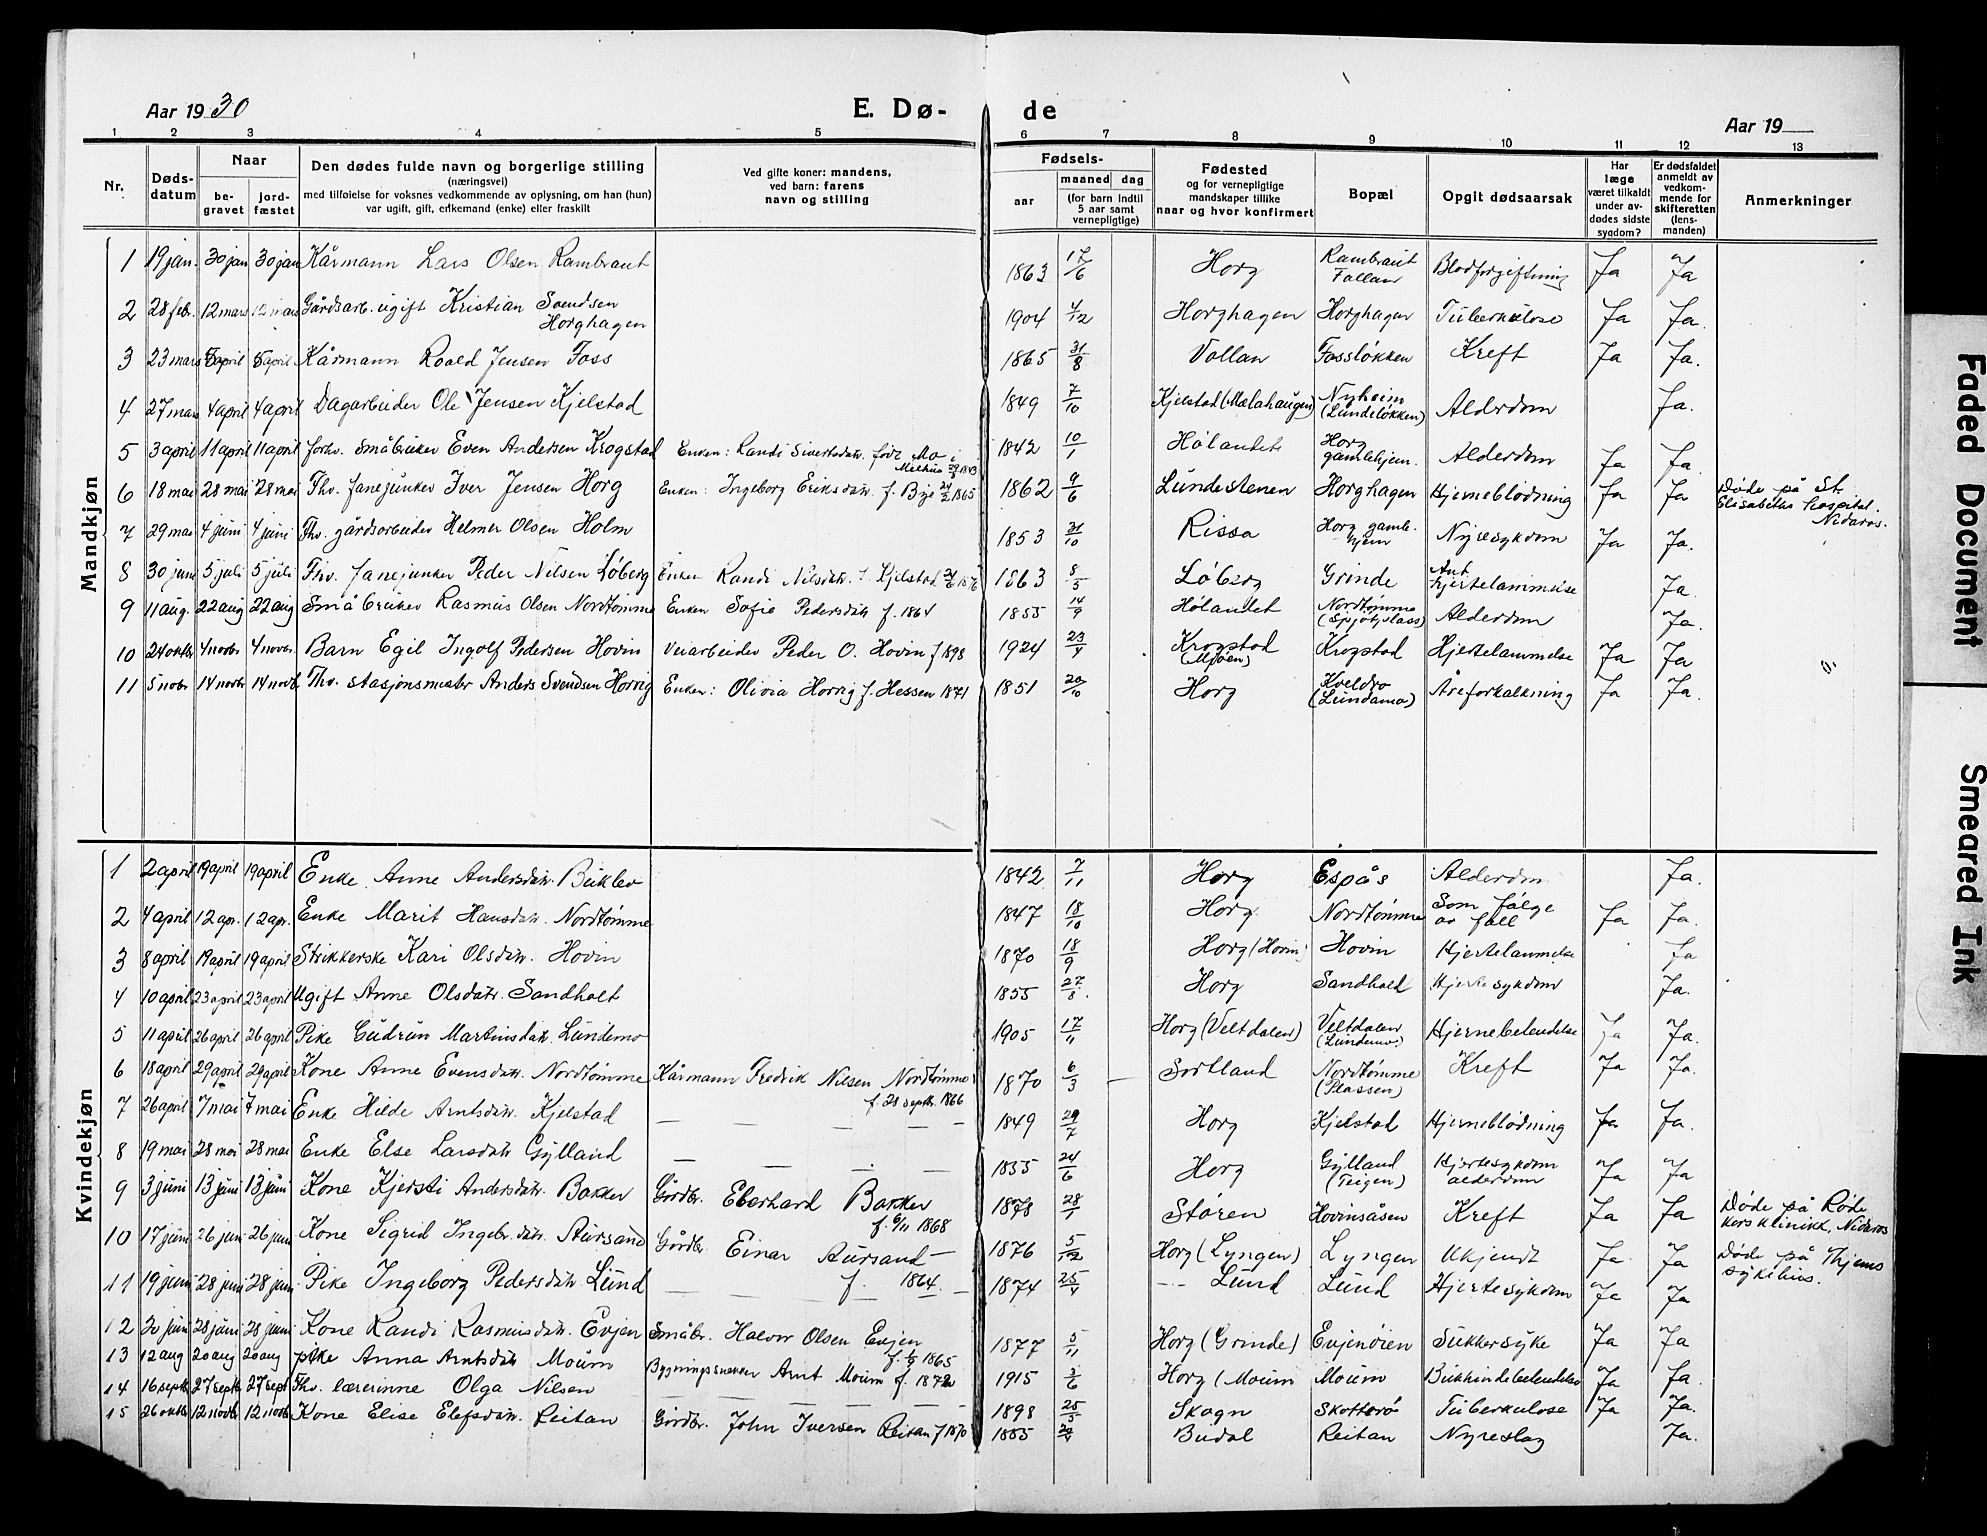 Aar 1930
E. Dø- de
Aar 19
1 2 3 4 5 6 7 8 9 10 11 12 13
Nr.
Døds-datum
Naar
be-gravet
jord-fæstet
Den dødes fulde navn og borgerlige stilling
(næringsvei)
med tilføielse for voksnes vedkommende av oplysning, om han (hun)
var ugift, gift, enkemand (enke) eller fraskilt
Ved gifte koner: mandens,
ved barn: farens
navn og stilling
Fødsels-
aar
maaned dag
(for barn indtil
5 aar samt
vernepligtige)
Fødested
og for vernepligtige
mandskaper tillike
naar og hvor konfirmert
Bopæl
Opgit dødsaarsak
Har
læge
været tilkaldt
under av-
dødes sidste
sygdom?
Er dødsfaldet
anmeldt av
vedkom-
mende for
skifteretten
(lens-
manden)
Anmerkninger
Mandkjøn
1 19 jan. 30 jan 30 jan Kårmann Lars Olsen Rambraut 1863 17/6 Horg Rambraut Follan Blodforgiftning Ja Ja
2 28 febr. 12 mars 12 mars Gårdsarb. ugift Kristian Svendsen Horghagen 1904 4/12 Horghagen Horghagen Tuberkulose Ja Ja.
3 23 mars 5 april 5 april Kårmann Roald Jensen Foss 1865 31/8 Vollan Fossløkken Kreft Ja Ja.
4 27 mars 4 april 4 april Dagarbeider Ole Jensen Kjelstad 1849 7/10 Kjelstad (Mælahaugen) Nyheim (Lundeløkken) Alderdom Ja.
5 3 april 11 april 11 april forhv. småbruker Even Andersen Krogstad Enken: Randi Sivertsdatr. født Mo i Melhus 1843 1842 10/1 Hølandet Horg gamlehjem. Alderdom Ja Ja.
6 18 mai 28 mai 28 mai Fhv. fanejunker Iver Jensen Horg Enken: Ingeborg Eriksdatr. f. Bye 24/2 1865 1862 9/6 Lundestenen Horghagen Hjerneblødning Ja Ja Døde på St. Elisabeths hospital. Nidaros.
7 29 mai 4 juni 4 juni Fhv. gårdsarbeider Helmer Olsen Holm 1853 31/10 Rissa Horg gamle-hjem Nyresykdom Ja Ja.
8 30 juni 5 juli 5 juli Fhv. fanejunker Peder Nilsen Løberg Enken Randi Nilsdatr. f. Kjelstad 1863 8/5 Løberg Grinde Akut hjertelammelse Ja.
9 11 aug. 22 aug 22 aug Småbruker Rasmus Olsen Nordtømme Enken Sofie Pedersdatr f. 1864 1855 14/9 Hølandet Nordtømme (Spjøtplass) Alderdom Ja.
10 24 oktbr 4 novbr 4 novbr. Barn Egil Ingolf Pedersen Hovin Veiarbeider Peder O. Hovin f 1898 1924 23/4 Krogstad (Mjøen) Krogstad Hjertelammelse Ja Ja
11 5 novbr 14 novbr 14 novbr. Fhv. stasjonsmester Anders Svendsen Horvig Enken: Olivia Horvig f. Hessen 1871 1851 20/10 Horg Kveldro (Lundamo) Åreforkalkning Ja Ja.
Kvindekjøn
1 2 april 19 april 19 april Enke Anne Andersdatr. Buklev 1842 7/11 Horg Espås Alderdom Ja.
2 4 april 12 apr. 12 apr. Enke Marit Hansdatr. Nordtømme 1847 18/10 Horg Nordtømme Som følge av fall Ja Ja.
3 8 april 19 april 19 april Strikkerske Kari Olsdatr. Hovin 1870 18/9 Horg (Hovin) Hovin Hjertelammelse Ja
4 10 april 23 april 23 april Ugift Anne Olsdatr. Sandholt 1855 27/8 Horg Sandhold Hjertesykdom Ja.
5 11 april 26 april 26 april Pike Gudrun Martinsdatr. Lundemo 1905 17/11 Horg (Veltdalen) Veltdalen (Lundemo) Hjernebetendelse Ja Ja.
6 18 april 29 april 29 april Kone Anne Evensdatr. Nordtømme Kårmann Fredrik Nilsen Nordtømme f. 28 septbr. 1866 1870 6/3 Sortland Nordtømme (Plassen) Kreft Ja Ja.
7 26 april 7 mai 7 mai Enke Hilde Arntsdatr. Kjelstad 1849 29/7 Horg Kjelstad Hjerneblødning Ja Ja.
8 19 mai 28 mai 28 mai Enke Else Larsdatr Gylland 1855 24/6 Horg Gylland (Teigen) Hjertesykdom alderdom Ja Ja
9 3 juni 13 juni 13 juni Kone Kjersti Andersdatr. Bakken Gårdbr. Eberhard Bakken f. 6/11 1868 1878 28/1 Støren Hovinsåsen Kreft Ja Ja Døde på Røde kors klinikk, Nidaros
10 17 juni 26 juni 26 juni Kone Sigrid Ingebr.datr. Aursand Gårdbr Einar Aursand f. 1864. 1876 5/12 Horg (Lyngen) Lyngen Ukjendt Ja. Ja Døde på Thjems sykehus.
11 19 juni 28 juni 28 juni Pike Ingeborg Pedersdatr. Lund 1874 25/4 Lund Lund Hjertesykdom Ja Ja
12 20 juni 28 juni 28 juni Kone Randi Rasmusdatr. Evjen Småbr. Halvor Olsen Evjen 1865 1877 5/11 Horg (Grinde) Evjenøien Sukkersyke Ja Ja
13 12 aug 20 aug 20 aug pike Anna Arntsdatr Moum Bygningssnekker Arnt Moum f. 1872 1915 3/6 Horg (Moum Moum Bukhindebetendelse Ja Ja.
14 16 septbr 27 septbr 27 sept Fhv. lærerinne Olga Nilsen 1898 25/3 Skogn Skotterø Tuberkulose Ja Ja.
15 26 oktbr 12 novbr 12 novbr Kone Elise Elefsdatr. Reitan Gårdbr. John Iversen Reitan f 1870 1885 Budal Reitan Nyreslag Ja.
Faded Document
Smeared Ink